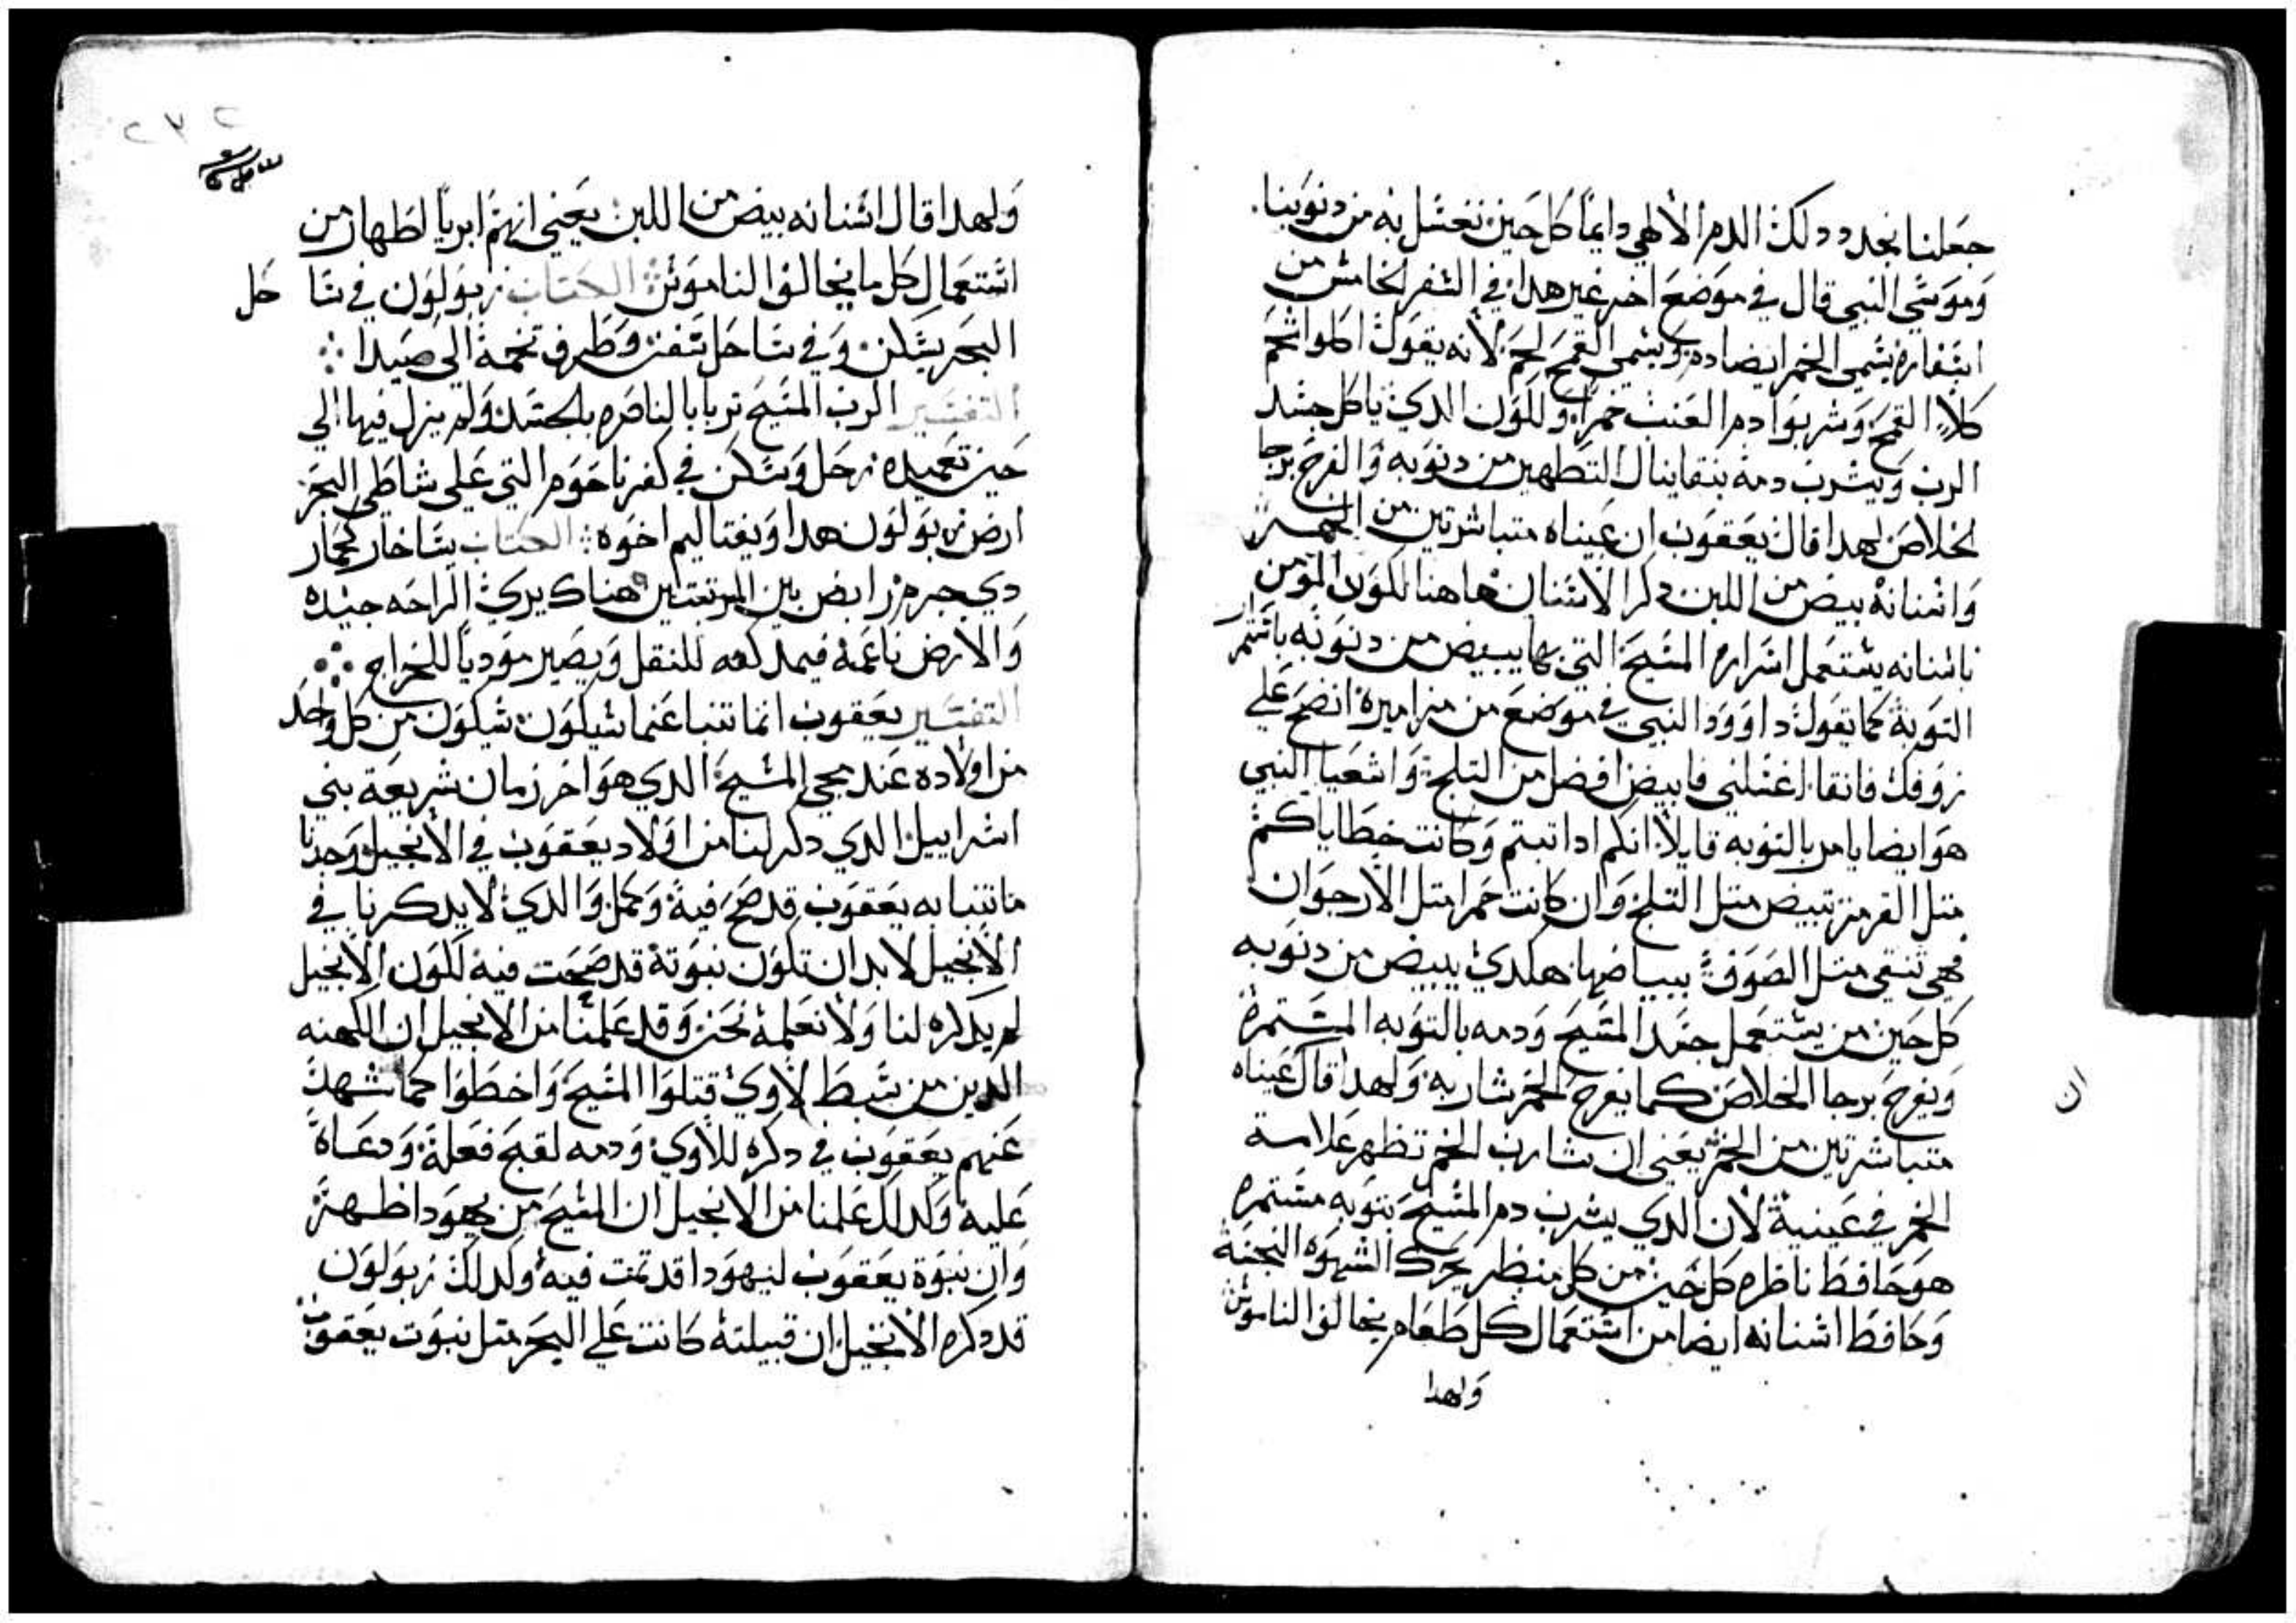 جعلنا نجدد دلك الدم الالهي دايمًا كل حين نغسل به من دنوبنا.
وموسي النبي قال في موضع اخر غير هدا في السفر الخامس من
اسفاره يسمي الخمر ايضا دم ويسمي القمح لحم لانه يقول اكلوا شحم
كلاء القمح وشربوا دم العنب خمرا وللون الدي ياكل جسد
الرب ويشرب دمه بنقا ينال التطهير من دنوبه والفرح برجا
الخلاص لهدا قال يعقوب ان عيناه متباشرتين من الخمر
واسنانه بيض من اللبن دكر الاسنان هاهنا للون المومن
باسنانه يستعمل اسراره المسيح التي بها يبيض من دنوبه باستمرار
التوبة كما يقول داوود النبي في موضع من مزاميره انضح علي
زوفك فانقا اغسلني فابيض افضل من التلج واشعيا النبي
هو ايضا يامر بالتوبه قايلا انكم ادا تبتم وكانت خطاياكم
متل القرمز تبيض متل التلج وان كانت حمرا متل الارجوان
فهي تنقي متل الصوف بياضها هكدي يبيض من دنوبه
كل حين من يستعمل جسد المسيح ودمه بالتوبه المستمرة
ويفرح برجا الخلاص كما يفرح الخمر شاربه ولهدا قال عيناه
ان
متباشرتين من الخمر يعني ان شارب الخمر تظهر علامة
الخمر في عينية لان الدي يشرب دم المسيح بتوبه مستمره
هو حافظ ناظره كل حين من كل منظر يحرك الشهوه النجسة
وحافظ اسنانه ايضا من استعمال كل طعام يخالف الناموس
ولهدا
٢٧٢
ولهدا قال اسنانه بيض من اللبن يعني انهم ابريا اطهار من
استعمال كل ما يخالف الناموس الكتاب زبولون في سا حل
البحر يسكن وفي ساحل سفن وطرف تخمة الي صيدا
التفسير الرب المسيح تربا بالناصره بالجسد ولم يزل فيها الي
حين تعميده رحل وسكن في كفرناحوم التي علي شاطي البحر
ارض زبولون هدا ويفتاليم اخوه الكتاب يساخار كحمار
دي جرم رابض بين المرتعتين هناك يري الراحه جيده
والارض ناعمة فيمد كتفه للنقل ويصير موديا للخراج
التفسير يعقوب انما تنبا عنما سيكون سيكون من كل واحد
من اولاده عند مجي المسيح الدي هو اخر زمان شريعة بني
اسراييل الدي دكر لنا من اولاد يعقوب في الانجيل وجدنا
ما تنبا به يعقوب قد صح فية وكمل والدي لا يدكر نا في
الانجيل لابد ان تكون نبوتة قد صحت فية للون الانجيل
لم يدكره لنا ولا نعلمة نحن وقد علمنا من الانجيل ان الكهنه
الدين من سبط لاوي قتلوا المسيح واخطوا كما شهد
عنهم يعقوب في دكره للاوي ودمه لقبح فعلة ودعاة
عليه وكدلك علمنا من الانجيل ان المسيح من يهودا ظهر
وان نبوة يعقوب ليهودا قد تمت فيه وكدلك زبولون
قد دكره الانجيل ان قبيلتة كانت علي البحر متل نبوت يعقوب